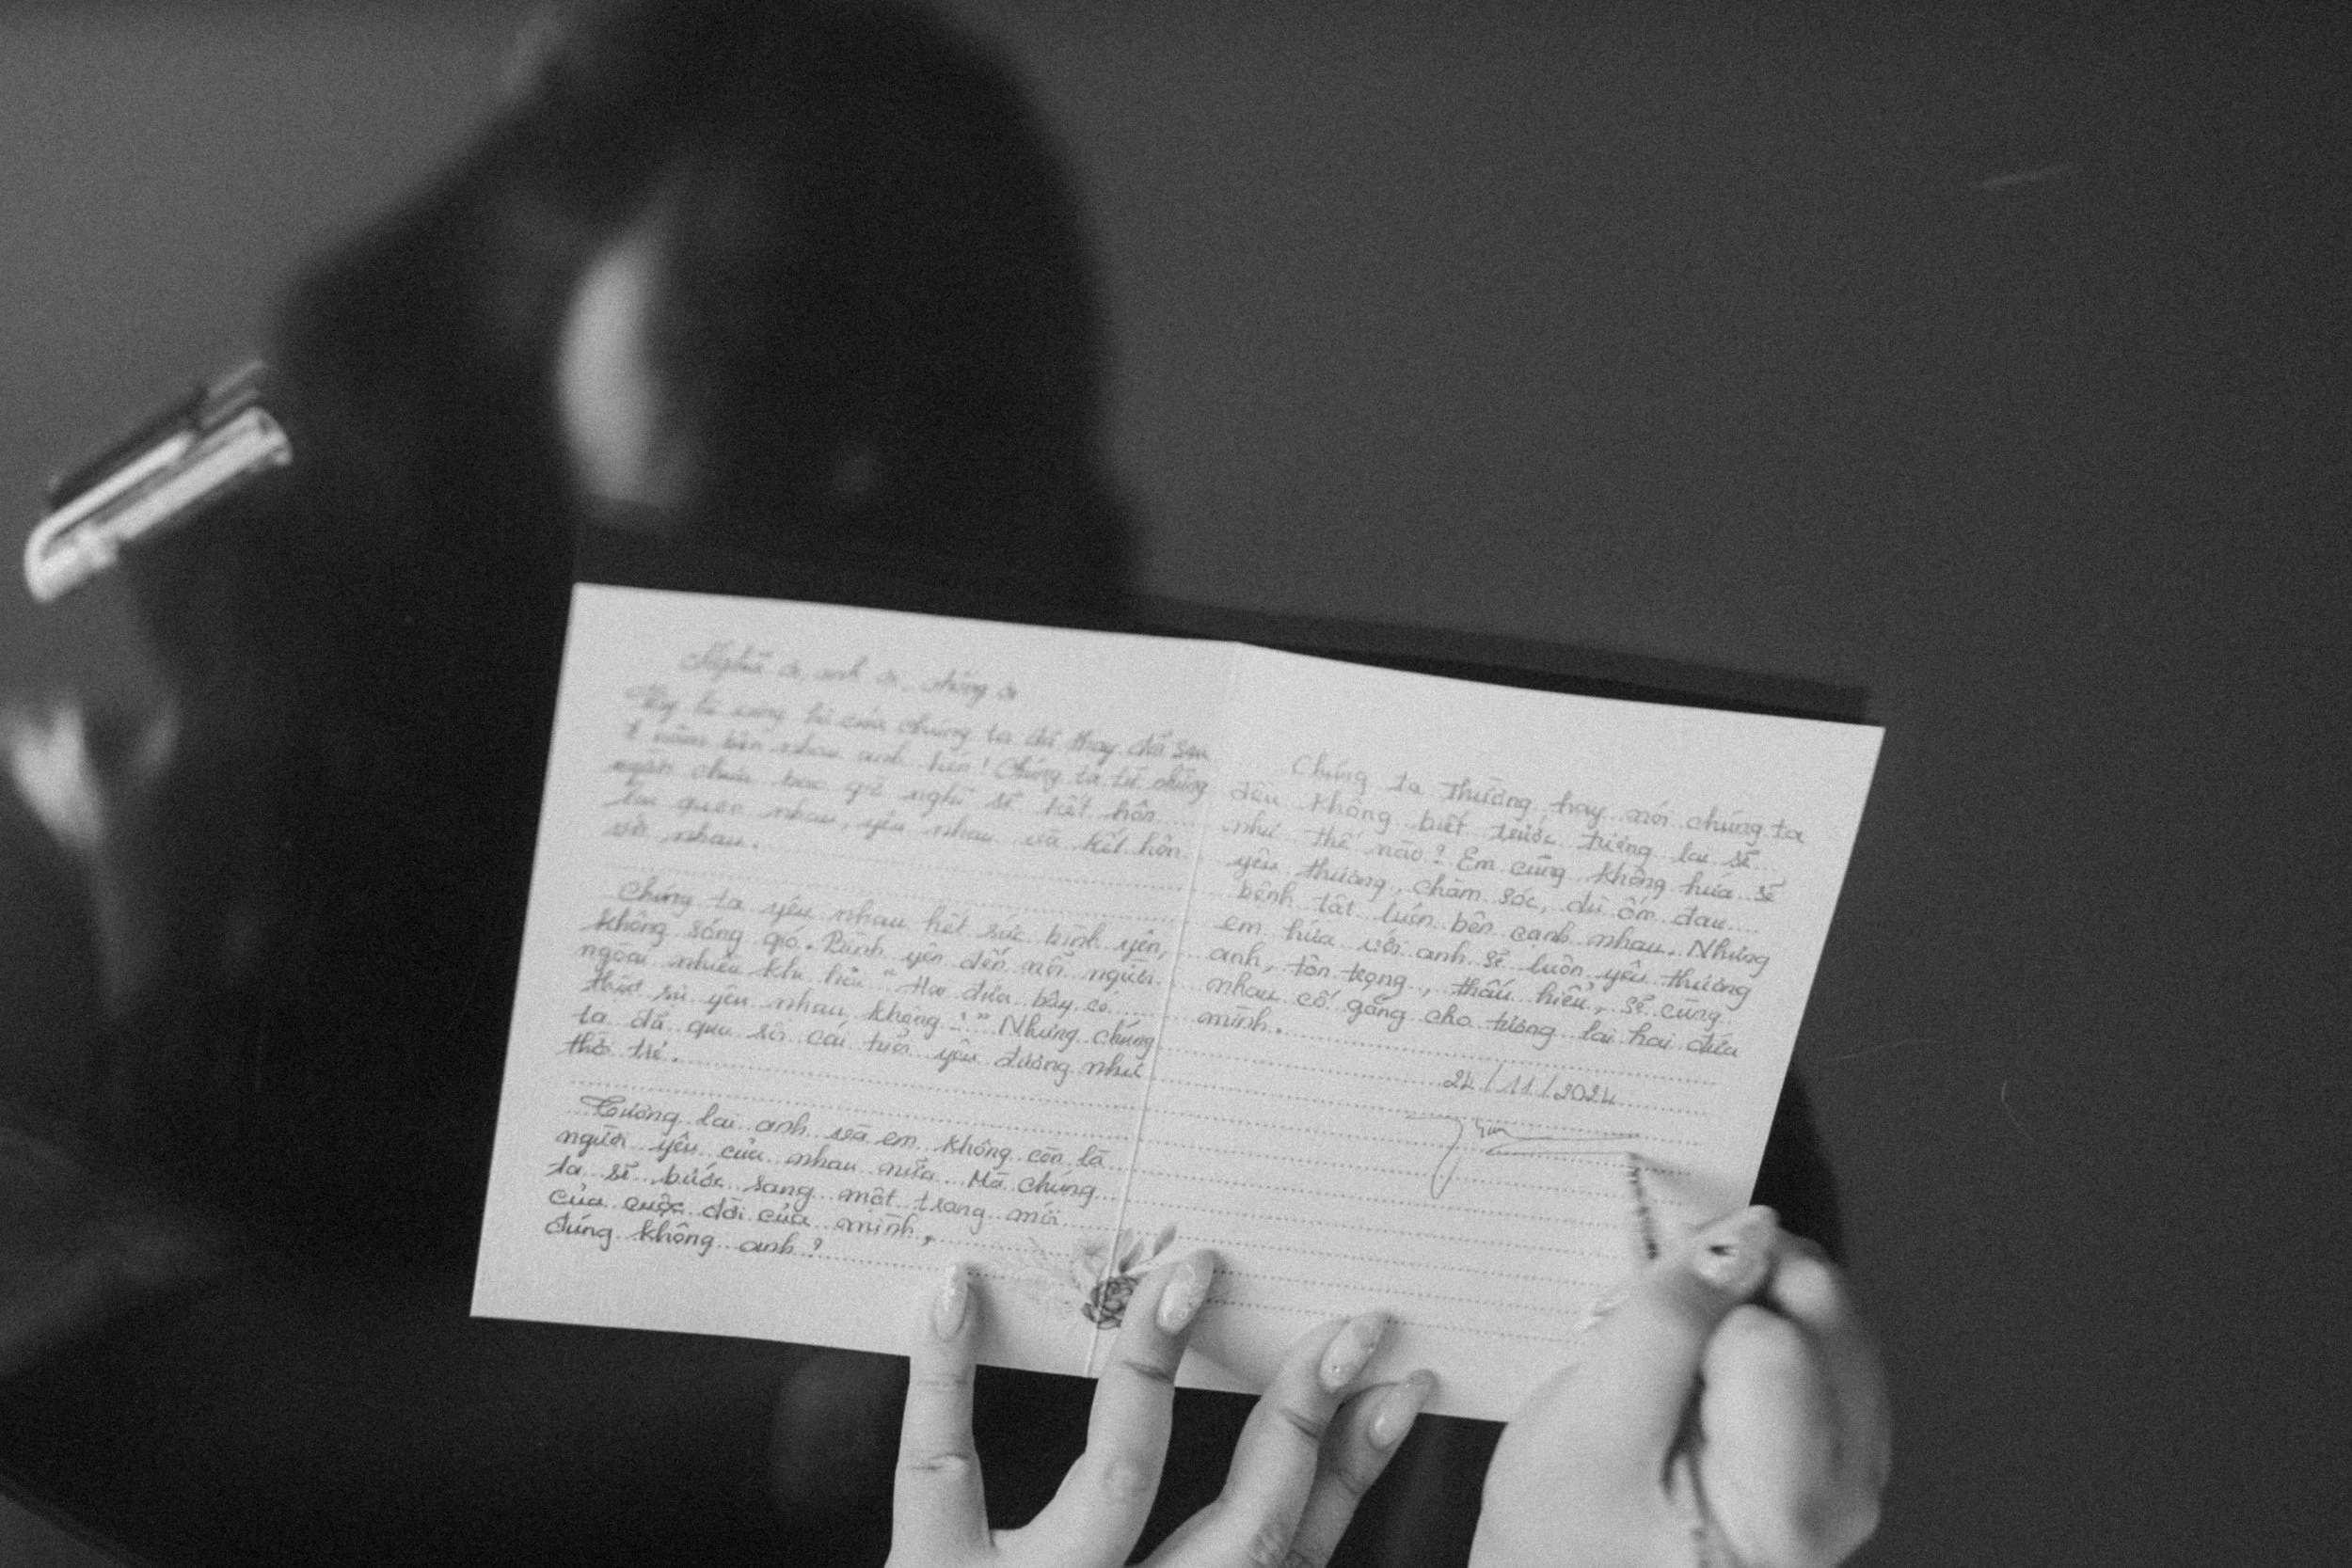 Nghĩa ơi, anh ơi, chồng ơi
của chúng ta đã thay đổi sau
năm bên nhau anh hén! Chúng ta từ những
người chưa bao giờ nghĩ sẽ kết hôn
lại quen nhau, yêu nhau và kết hôn
với nhau.
Chúng ta yêu nhau hết sức bình yên,
không sóng gió. Bình yên đến nỗi người
ngoài nhiều khi hỏi "Hai đứa bây có
thật sự yêu nhau không?" Nhưng chúng
ta đã qua rồi cái tuổi yêu đương như
thời trẻ.
Tương lai anh và em không còn là
người yêu của nhau nữa. Mà chúng
ta sẽ bước sang một trang mới
của cuộc đời của mình,
đúng không anh?
Chúng ta thường hay nói chúng ta
đều không biết trước tương lai sẽ
như thế nào? Em cũng không hứa sẽ
yêu thương, chăm sóc, dù ốm đau
bệnh tật luôn bên cạnh nhau. Nhưng
em hứa với anh sẽ luôn yêu thương
anh, tôn trọng, thấu hiểu, sẽ cùng
nhau cố gắng cho tương lai hai đứa
mình.
24/11/2024